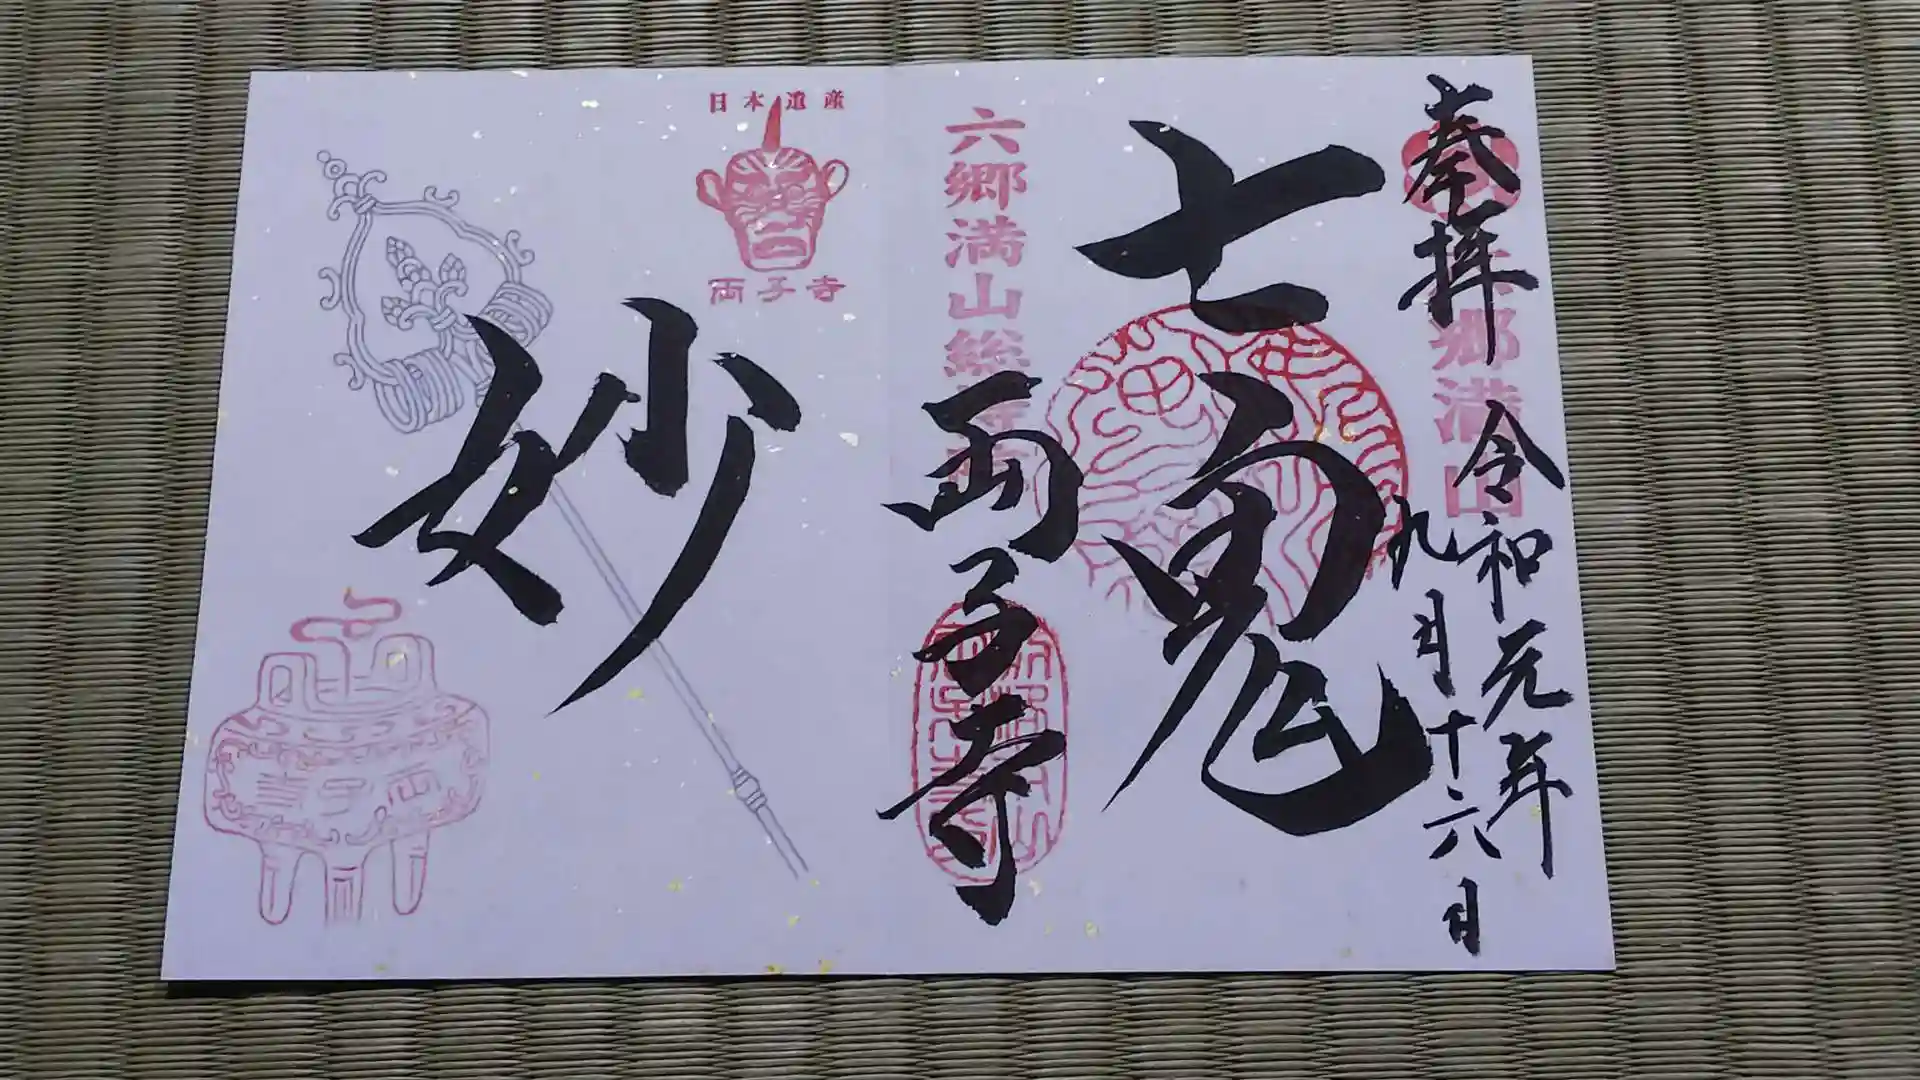 奉拝
六郷満山
令和元年
九月十六日
七鬼
六郷満山総持院
両子寺
日本遺産
両子寺
妙
両子寺